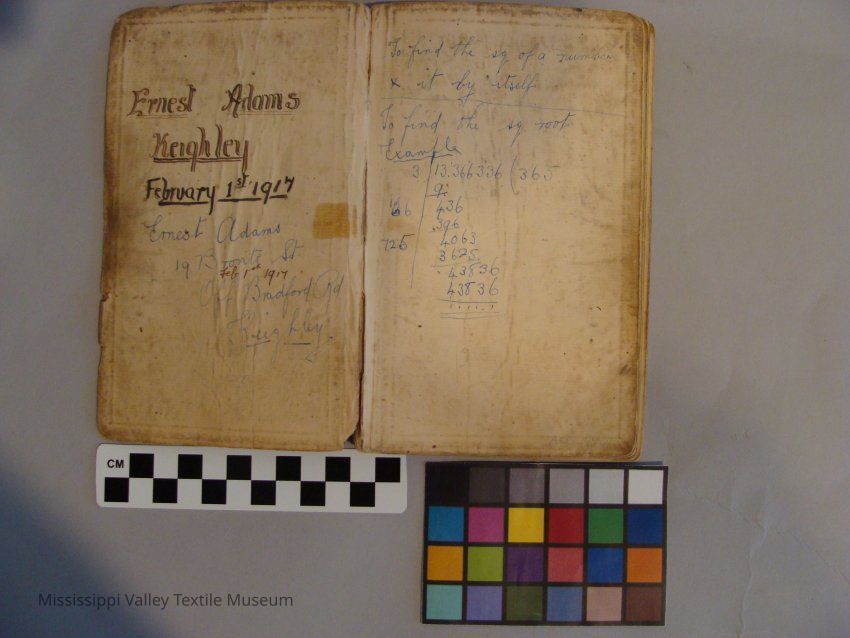 Ernest Adams
Keighley
February 1st 1917
Ernest Adams
19 Bronte St
Feb 1st 1917
Off Bradford Rd
Keighley
To find the sq of a number
x it by itself
To find the sq root
Example
3 13.366336 (365
9
66 436
.396
725 4063
3625
43836
43836
CM
Mississippi Valley Textile Museum